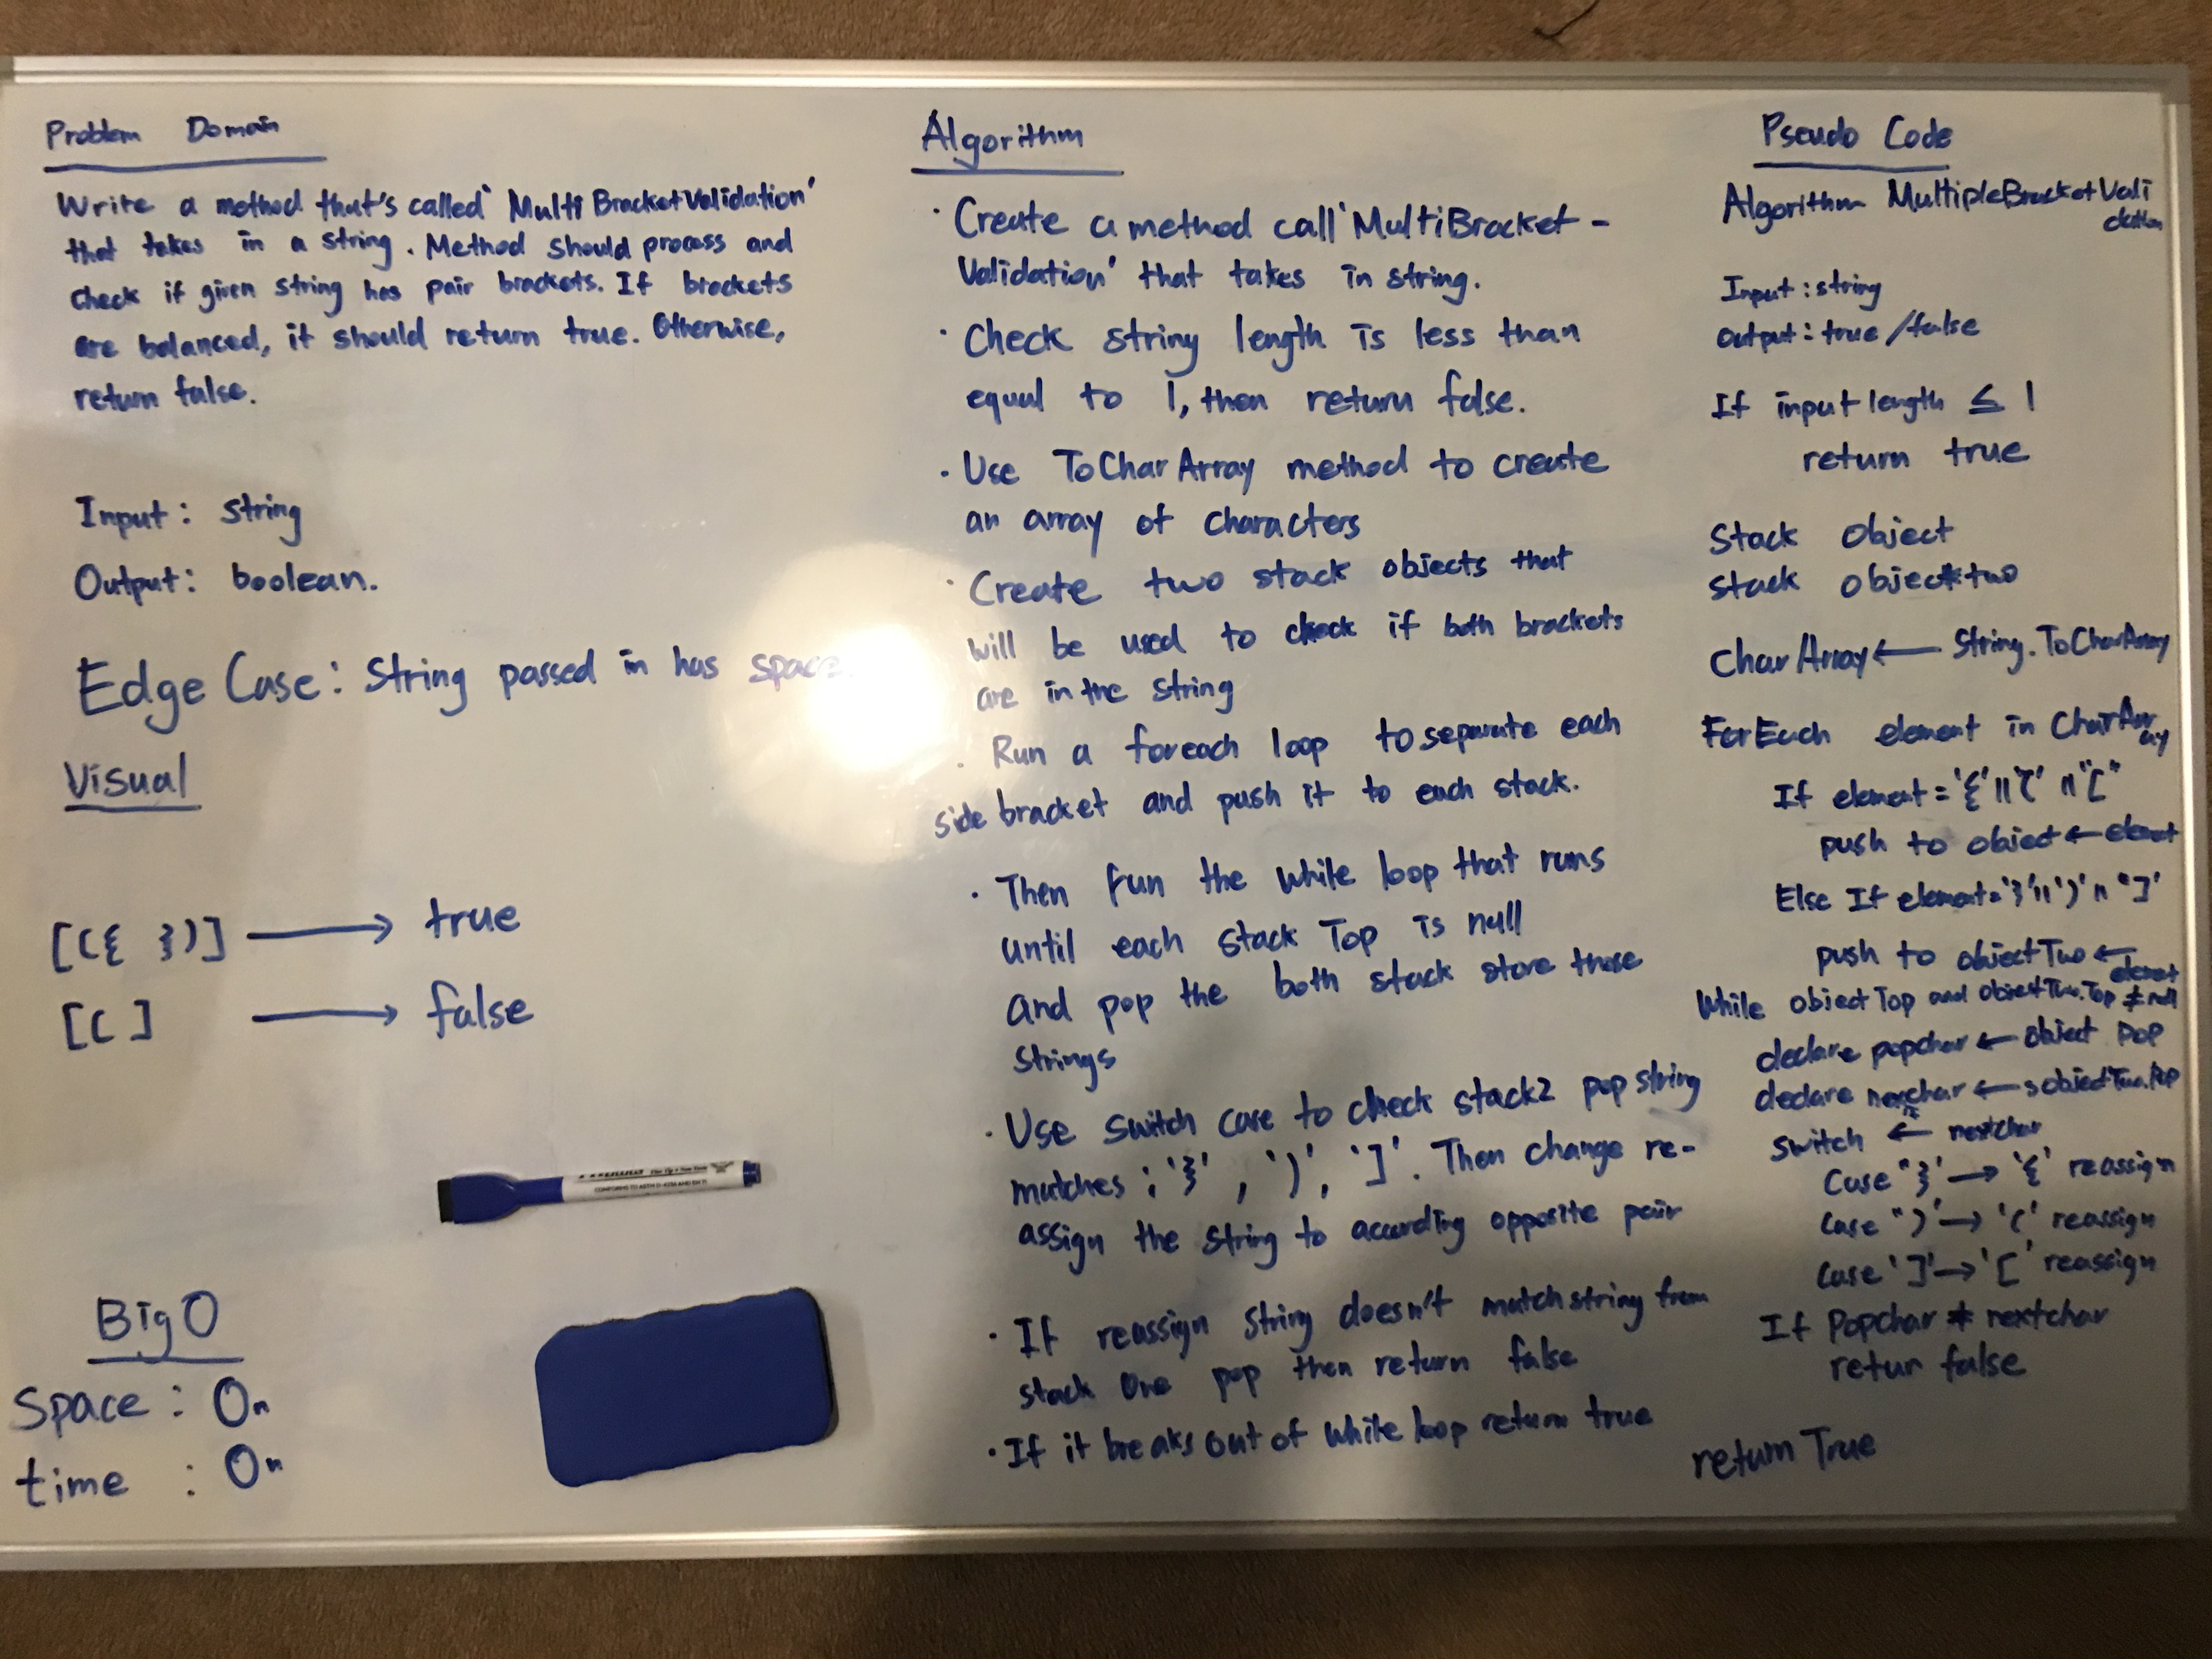 Problem Domain
Write a method that's called `MultiBracketValidation'
that takes in a string. Method should process and
check if given string has pair brackets. If brackets
are balanced, it should return true. Otherwise,
return false.
Input: string
Output: boolean.
Edge Case: String passed in has space.
Visual
[({ })] → true
[( ] → false
Big O
Space : On
time : On
Algorithm
· Create a method call `MultiBracket-
Validation' that takes in string.
· Check string length is less than
equal to 1, then return false.
· Use ToCharArray method to create
an array of characters
· Create two stack objects that
will be used to check if both brackets
are in the string
. Run a foreach loop to separate each
side bracket and push it to each stack.
· Then fun the while loop that runs
until each stack Top is null
and pop the both stack store those
strings
· Use switch case to check stack2 pop string
matches ; '}' , ')', ']'. Then change re-
assign the string to according opposite pair
· If reassign string doesn't match string from
stack one pop then return false
· If it breaks out of while loop return true
Pseudo Code
Algorithm MultipleBracketVali
dation
Input : string
output : true /false
If input length ≤ 1
return true
Stack Object
stack object two
CharArray ← String.ToCharArray
ForEach element in CharArr
ay
If element = '{' || '(' || "["
push to object ← element
Else If element = '}' || ')' || "]'
push to objectTwo ←
element
While objectTop and objectTwo.Top ≠ null
declare popchar ← object Pop
declare nextchar ← objectTwo.Pop
switch ← nextchar
Case "}' → '{' reassign
Case ")' → '(' reassign
Case ']' → '[' reassign
If Popchar ≠ nextchar
retur false
return True